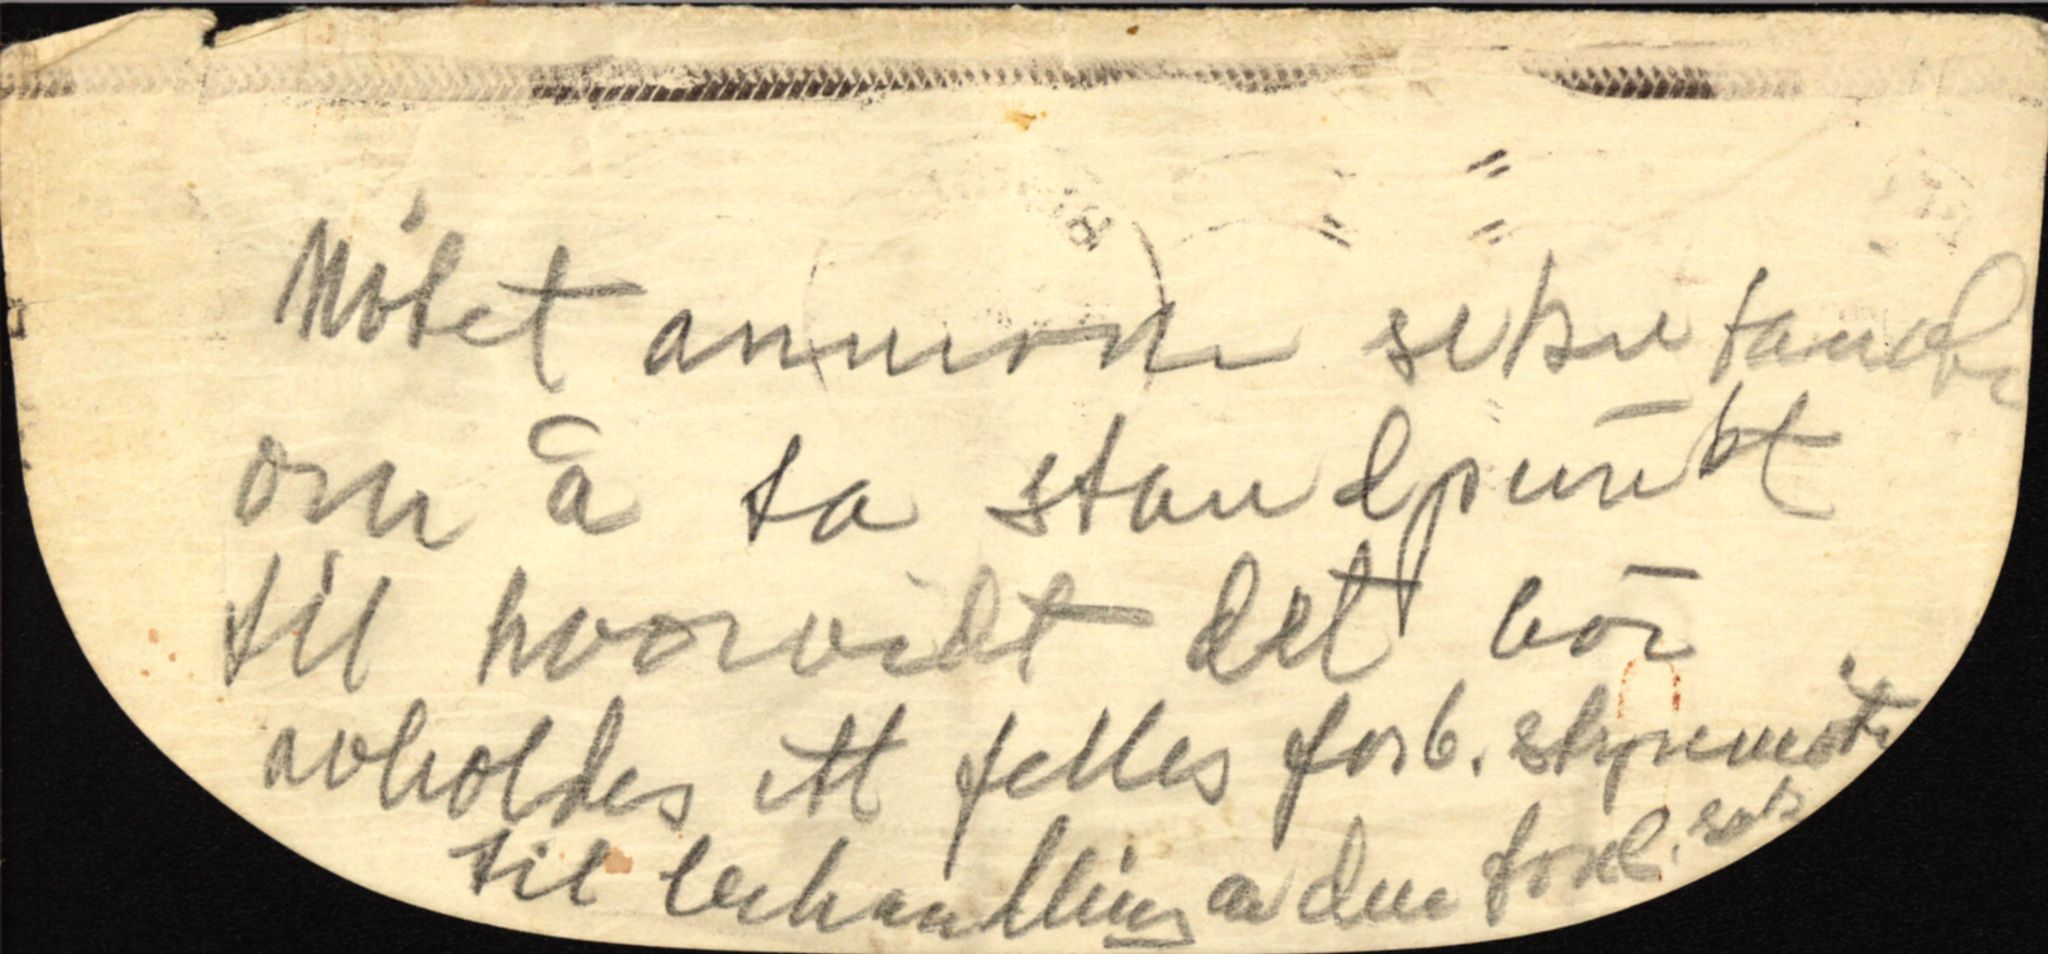 Møtet anmoder sekretariatet
om å ta standpunkt
til hvorvidt det bør
avholdes ett felles forb. styremøte
til behandling av den forel. sak